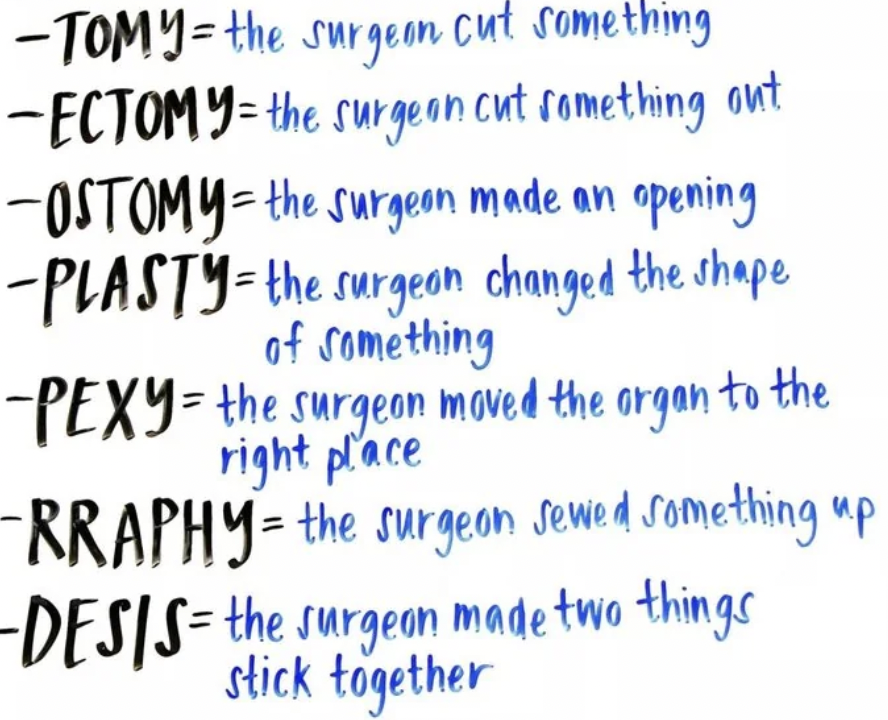 -TOMY= the surgeon cut something
-ECTOMY= the surgeon cut something out
-OSTOMY= the surgeon made an opening
-PLASTY= the surgeon changed the shape
of something
-PEXY= the surgeon moved the organ to the
right place
-RRAPHY= the surgeon sewed something up
-DESIS= the surgeon made two things
stick together